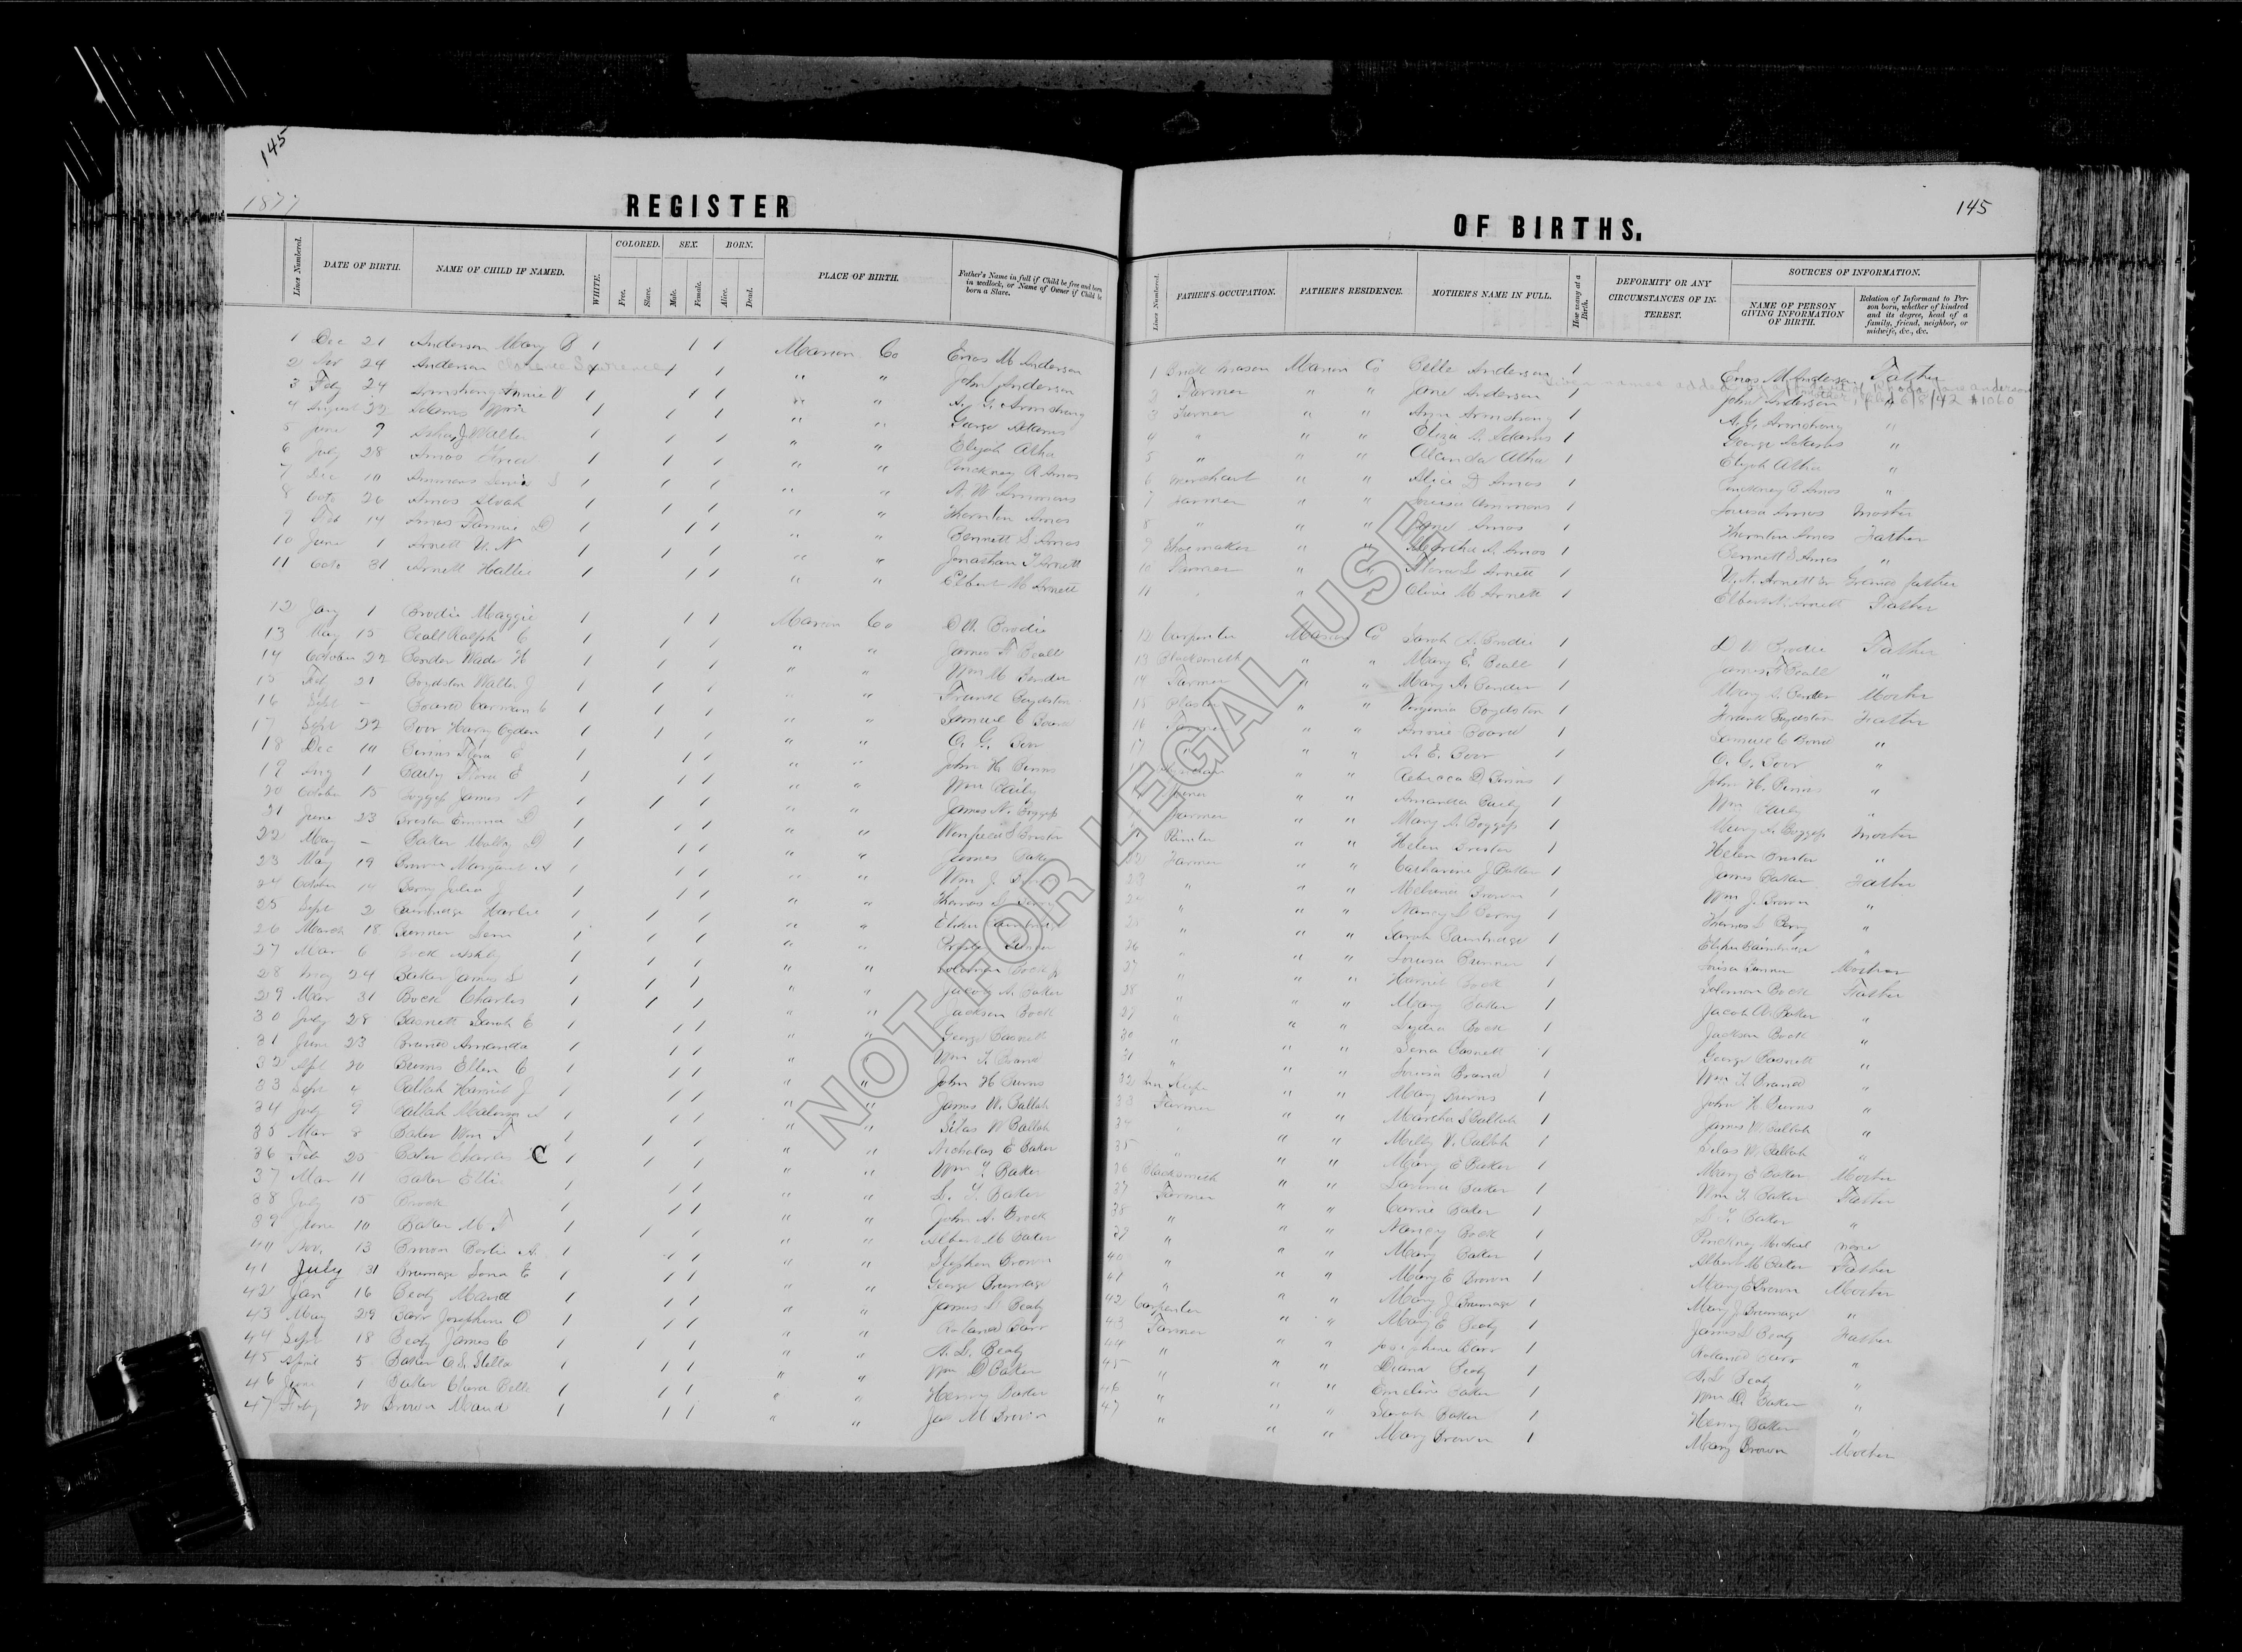 145
1877
REGISTER
OF BIRTHS.
145
Lines Numbered.
DATE OF BIRTH.
NAME OF CHILD IF NAMED.
WHITE.
COLORED.
Free.
Slave.
SEX.
Male.
Female.
BORN.
Alive.
Dead.
PLACE OF BIRTH.
Father's Name in full if Child be free and born
in wedlock, or Name of Owner if Child be
born a Slave.
Lines Numbered.
FATHER'S OCCUPATION.
FATHER'S RESIDENCE.
MOTHER'S NAME IN FULL.
How many at a
Birth.
DEFORMITY OR ANY
CIRCUMSTANCES OF IN-
TEREST.
SOURCES OF INFORMATION.
NAME OF PERSON
GIVING INFORMATION
OF BIRTH.
Relation of Informant to Per-
son born, whether of kindred
and its degree, head of a
family, friend, neighbor, or
midwife, &c., &c.
1 Dec 21 Anderson Mary B 1 1 1 Marion Co Enos M Anderson
2 24 Anderson Clarence Lawrence 1 1 " " John Anderson
3 Feby 24 Armstrong Annie V 1 1 " " A. G. Armstrong
4 August 22 Adams Wm 1 1 1 " " George Adams
5 June 9 Walter 1 1 1 " " Elijah Atha
6 July 28 Amos 1 1 1 " " Pinckney R Amos
7 Dec 10 Ammons S 1 1 1 " " A. W Ammons
8 Octo 26 Amos Noah 1 1 1 " " Thornton Amos
9 Feb 14 Amos Fannie D 1 1 1 " " Bennett S Amos
10 June 1 Arnett U. N 1 1 1 " " Jonathan F Arnett
11 Octo 31 Arnett Hallie 1 1 1 " " Elbert M Arnett
12 Jany 1 Brodie Maggie 1 1 1 Marion Co Brodie
13 May 15 Beall Ralph C 1 1 1 " " James F Beall
14 October 22 Bender Wade H 1 1 1 " " Wm M Bender
15 Feb 21 Boydston Walter J 1 1 1 " " Frank Boydston
16 Sept - Board Carman C 1 1 1 " " Samuel C Board
17 Sept 22 Boor Harry Ogden 1 1 1 " " O. G. Boor
18 Dec 10 Binns Flora E 1 1 1 " " John H. Binns
19 Aug 1 Baily Flora E 1 1 1 " " Wm Baily
20 October 15 Boggess James N 1 1 1 " " James N. Boggess
21 June 23 Brister Emma D 1 1 1 " " Winfield S Brister
22 May - Baker Molly D 1 1 1 " " James Baker
23 May 19 Brown Margaret A 1 1 1 " " Wm J. Brown
24 October 14 Berry Julia J 1 1 " " Thomas L Berry
25 Sept 2 Bainbridge Harlie 1 1 1 " "
26 March 18 Bunner 1 1 1 " "
27 Mar 6 Bock Ashby 1 1 1 " " Solomon Bock
28 May 24 Baker James L 1 1 1 " " Jacob A. Baker
29 Mar 31 Bock Charles 1 1 1 " " Jackson Bock
30 July 28 Basnett Sarah E 1 1 1 " " George Basnett
31 June 23 Brand Amanda 1 1 1 " " Wm T. Brand
32 Apl 20 Burns Ellen C 1 1 1 " " John H Burns
33 Sept 4 Ballah Harriet J 1 1 1 " " James W. Ballah
34 July 9 Ballah A 1 1 1 " " Silas W Ballah
35 Mar 8 Baker Wm T 1 1 1 " " Nicholas E Baker
36 Feb 25 Baker Charles C 1 1 1 " " Wm T. Baker
37 Mar 11 Baker Ellis 1 1 1 " " Baker
38 July 15 Brock 1 1 1 " " John A. Brock
39 June 10 Baker M F 1 1 1 " " Albert M Baker
40 Nov. 13 Brown Bertie A. 1 1 1 " " Stephen Brown
41 July 31 Brumage Lona E 1 1 1 " " George Brumage
42 Jan 16 Beaty Maud 1 1 1 " " James L Beaty
43 May 29 Barr Josephine O 1 1 1 " " Roland Barr
44 Sept 18 Beaty James C 1 1 1 " " A. L. Beaty
45 April 5 Baker Stella 1 1 1 " " Wm D Baker
46 June 1 Baker Clara Belle 1 1 1 " " Henry Baker
47 Feby 20 Brown Maud 1 1 1 " " M Brown
1 Brick mason Marion Co Belle Anderson 1 Enos M. Anderson Father
Given names added by affidavit of Rhoda Jane Anderson
6/8/42 #1060
2 Farmer " " Jane Anderson 1 John Anderson "
3 Farmer " " Armstrong 1 A. G. Armstrong "
4 " " " Eliza Adams 1 George Adams "
5 " " " Alcinda Atha 1 Elijah Atha "
6 Merchant " " Alice D Amos 1 Pinckney R Amos "
7 Farmer " " Louisa Ammons 1 Louisa Amos Mother
8 " " " Jane Amos 1 Thornton Amos Father
9 Shoemaker " " Martha Amos 1 Bennett S Amos "
10 Farmer " " Arnett 1 U. N. Arnett Sr Grand father
11 " " " Olive M Arnett 1 Elbert M. Arnett Father
12 Carpenter Marion Co Sarah Brodie 1 Brodie Father
13 Blacksmith " " Mary E. Beall 1 James F. Beall "
14 Farmer " " Mary A. Bender 1 Mary A. Bender Mother
15 " " Virginia Boydston 1 Frank Boydston Father
16 Farmer " " Annie Board 1 Samuel C Board "
17 " " A. E. Boor 1 O. G. Boor "
" " Rebecca D Binns 1 John H. Binns "
" " Amanda Baily 1 Wm Baily "
Farmer " " Mary A. Boggess 1 Mary A. Boggess Mother
" " Helen Brister 1 Helen Brister "
22 Farmer " " Catharine J Baker 1 James Baker Father
23 " " " Brown 1 Wm J. Brown "
" " " Nancy Berry 1 Thomas L Berry "
25 " " " Sarah Bainbridge 1 Bainbridge "
26 " " " Louisa Bunner 1 Louisa Bunner Mother
27 " " " Harriet Bock 1 Solomon Bock Father
28 " " " Mary Baker 1 Jacob A Baker "
29 " " " Lydia Bock 1 Jackson Bock "
30 " " " Lena Basnett 1 George Basnett "
31 " " " Louisa Brand 1 Wm T. Brand "
32 " " Mary Burns 1 John H Burns "
33 Farmer " " Martha S Ballah 1 James W. Ballah "
34 " " " Milly V. Ballah 1 Silas W. Ballah "
35 " " " Mary E Baker 1 Mary E Baker Mother
36 Blacksmith " " Baker 1 Wm T. Baker Father
37 Farmer " " Carrie Baker 1 Baker "
38 " " " Nancy Bock 1 Pinckney Michael none
39 " " " Mary Baker 1 Albert M Baker Father
40 " " " Mary E Brown 1 Mary E Brown Mother
41 " " " Mary J Brumage 1 Mary J Brumage "
42 Carpenter " " Mary E Beaty 1 James L Beaty Father
43 Farmer " " Josephine Barr 1 Roland Barr "
44 " " " Diana Beaty 1 A. L Beaty "
45 " " " Emeline Baker 1 Wm D. Baker "
46 " " " Sarah Baker 1 Henry Baker "
47 " " " Mary Brown 1 Mary Brown Mother
NOT FOR LEGAL USE